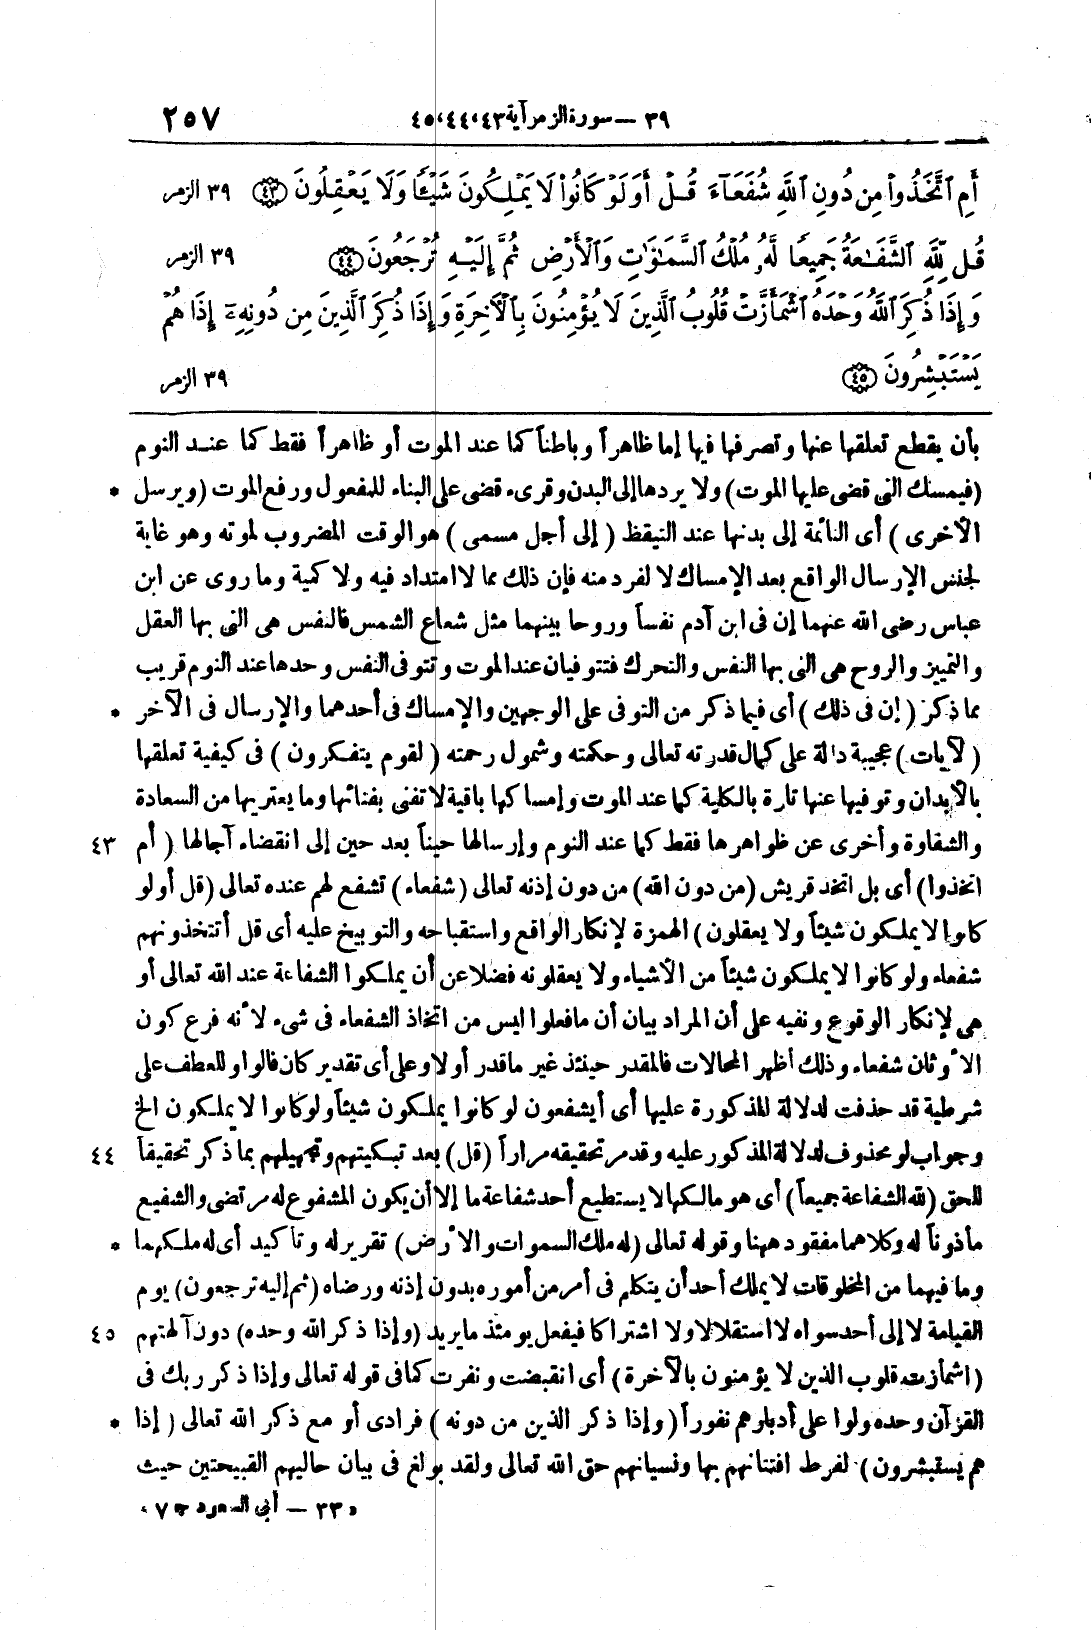 ٣٩ — سورة الزمر آية ٤٣، ٤٤، ٤٥
٢٥٧
أَمِ ٱتَّخَذُوا۟ مِن دُونِ ٱللَّهِ شُفَعَآءَ قُلْ أَوَلَوْ كَانُوا۟ لَا يَمْلِكُونَ شَيْـًٔا وَلَا يَعْقِلُونَ ﴿٤٣﴾ ٣٩ الزمر
قُل لِّلَّهِ ٱلشَّفَـٰعَةُ جَمِيعًا لَّهُۥ مُلْكُ ٱلسَّمَـٰوَٰتِ وَٱلْأَرْضِ ثُمَّ إِلَيْهِ تُرْجَعُونَ ﴿٤٤﴾ ٣٩ الزمر
وَإِذَا ذُكِرَ ٱللَّهُ وَحْدَهُ ٱشْمَأَزَّتْ قُلُوبُ ٱلَّذِينَ لَا يُؤْمِنُونَ بِٱلْـَٔاخِرَةِ وَإِذَا ذُكِرَ ٱلَّذِينَ مِن دُونِهِۦٓ إِذَا هُمْ
يَسْتَبْشِرُونَ ﴿٤٥﴾ ٣٩ الزمر
بأن يقطع تعلقها عنها وتصرفها فيها إما ظاهراً وباطناً كما عند الموت أو ظاهراً فقط كما عند النوم
(فيمسك التى قضى عليها الموت) ولا يردها إلى البدن وقرىء قضى على البناء للمفعول ورفع الموت (ويرسل *
الأخرى) أى النائمة إلى بدنها عند التيقظ (إلى أجل مسمى) هو الوقت المضروب لموته وهو غاية
لجنس الإرسال الواقع بعد الإمساك لا لفرد منه فإن ذلك مما لا امتداد فيه ولا كمية وما روى عن ابن
عباس رضى الله عنهما إن فى ابن آدم نفساً وروحا بينهما مثل شعاع الشمس فالنفس هى التى بها العقل
والتمييز والروح هى التى بها النفس والتحرك فتتوفيان عند الموت وتتوفى النفس وحدها عند النوم قريب
مما ذكر (إن فى ذلك) أى فيما ذكر من التوفى على الوجهين والإمساك فى أحدهما والإرسال فى الآخر *
(لآيات) عجيبة دالة على كمال قدرته تعالى وحكمته وشمول رحمته (لقوم يتفكرون) فى كيفية تعلقها
بالأبدان وتوفيها عنها تارة بالكلية كما عند الموت وإمساكها باقية لا تفنى بفنائها وما يعتريها من السعادة
والشقاوة وأخرى عن ظواهرها فقط كما عند النوم وإرسالها حيناً بعد حين إلى انقضاء آجالها (أم ٤٣
اتخذوا) أى بل اتخذ قريش (من دون الله) من دون إذنه تعالى (شفعاء) تشفع لهم عنده تعالى (قل أولو
كانوا لا يملكون شيئاً ولا يعقلون) الهمزة لإنكار الواقع واستقباحه والتوبيخ عليه أى قل أتتخذونهم
شفعاء ولو كانوا لا يملكون شيئاً من الأشياء ولا يعقلونه فضلا عن أن يملكوا الشفاعة عند الله تعالى أو
هى لإنكار الوقوع ونفيه على أن المراد بيان أن ما فعلوا ليس من اتخاذ الشفعاء فى شىء لأنه فرع كون
الأوثان شفعاء وذلك أظهر المحالات فالمقدر حينئذ غير ما قدر أولا وعلى أى تقدير كان فالواو للعطف على
شرطية قد حذفت لدلالة المذكورة عليها أى أيشفعون لو كانوا يملكون شيئاً ولو كانوا لا يملكون الخ
وجواب لو محذوف لدلالة المذكور عليه وقد مر تحقيقه مراراً (قل) بعد تبكيتهم وتجهيلهم بما ذكر تحقيقاً ٤٤
للحق (لله الشفاعة جميعاً) أى هو مالكها لا يستطيع أحد شفاعة ما إلا أن يكون المشفوع له مرتضى والشفيع
مأذوناً له وكلاهما مفقود ههنا وقوله تعالى (له ملك السموات والأرض) تقرير له وتأكيد أى له ملكهما *
وما فيهما من المخلوقات لا يملك أحد أن يتكلم فى أمر من أموره بدون إذنه ورضاه (ثم إليه ترجعون) يوم
القيامة لا إلى أحد سواه لا استقلالا ولا اشتراكا فيفعل يومئذ ما يريد (وإذا ذكر الله وحده) دون آلهتهم ٤٥
(اشمأزت قلوب الذين لا يؤمنون بالآخرة) أى انقبضت ونفرت كما فى قوله تعالى وإذا ذكر ربك فى
القرآن وحده ولوا على أدبارهم نفوراً (وإذا ذكر الذين من دونه) فرادى أو مع ذكر الله تعالى (إذا *
هم يستبشرون) لفرط افتتانهم بها ونسيانهم حق الله تعالى ولقد بولغ فى بيان حاليهم القبيحتين حيث
« ٣٣ — أبى السعود ج ٧ »